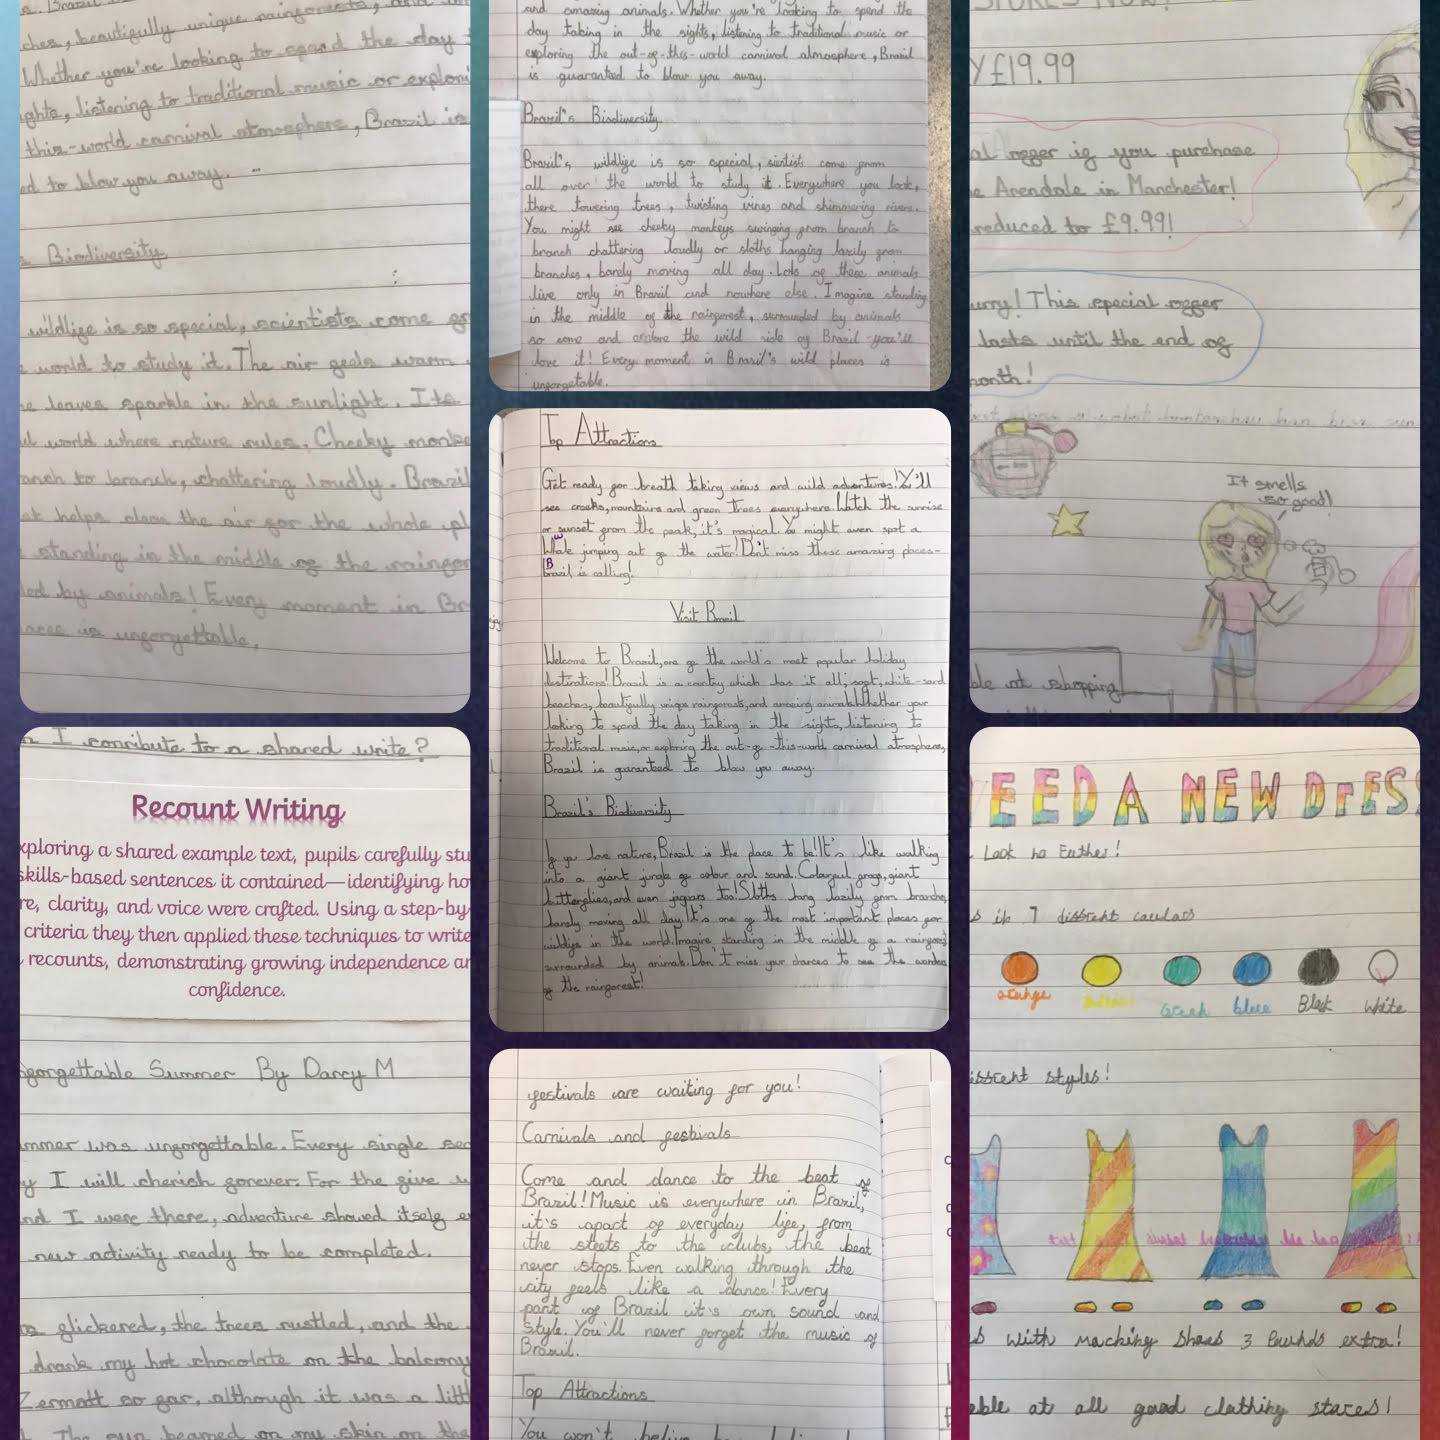 s. Brazil
ches, beautifully unique rainforests, and
Whether you're looking to spend the day
ghts, listening to traditional music or explori
this-world carnival atmosphere, Brazil is
ed to blow you away.
Biodiversity
wildlife is so special, scientists come fr
world to study it. The air feels warm
e leaves sparkle in the sunlight. Its
ul world where nature rules. Cheeky monke
anch to branch, chattering loudly. Brazil
at helps clean the air for the whole pl
standing in the middle of the rainfor
ded by animals! Every moment in Br
aces is unforgettable.
n I conribute to a shared write?
Recount Writing
xploring a shared example text, pupils carefully stu
skills-based sentences it contained—identifying ho
re, clarity, and voice were crafted. Using a step-by-
criteria they then applied these techniques to write
recounts, demonstrating growing independence an
confidence.
forgettable Summer By Darcy M
mmer was unforgettable. Every single sec
y I will cherish forever. For the five
nd I were there, adventure showed itself e
new activity ready to be completed.
glickered, the trees rustled, and the
drank my hot chocolate on the balcony
Zermatt so far, although it was a littl
The sun beamed on my skin on the
and amazing animals. Whether you're looking to spend the
day taking in the sights, listening to traditional music or
exploring the out-of-this-world carnival atmosphere, Brazil
is guaranteed to blow you away.
Brazil's Biodiversity
Brazil's wildlife is so special, sientists come from
all over the world to study it. Everywhere you look,
there towering trees, twisting vines and shimmering rivers.
You might see cheeky monkeys swinging from branch to
branch chattering loudly or sloths hanging lazily from
branches, barely moving all day. Lots of these animals
live only in Brazil and nowhere else. Imagine standing
in the middle of the rainforest, surrounded by animals
so come and explore the wild side of Brazil - you'll
love it! Every moment in Brazil's wild places is
unforgetable.
Top Attractions
Get ready for breath taking views and wild adventures! You'll
see creeks, mountains and green trees everywhere. Watch the sunrise
or sunset from the peak, it's magical. You might even spot a
Whale jumping out of the water! Don't miss these amazing places-
Brazil is calling!
Visit Brazil
Welcome to Brazil, one of the world's most popular holiday
destinations! Brazil is a country which has it all; soft, white-sand
beaches, beautifully unique rainforests, and amazing animals. Whether your
looking to spend the day taking in the sights, listening to
traditional music, or exploring the out-of-this-world carnival atmosphere,
Brazil is guaranteed to blow you away.
Brazil's Biodiversity
If you love nature, Brazil is the place to be! It's like walking
into a giant jungle of colour and sound. Colourful frogs, giant
butterflies, and even jaguars too! Sloths hang lazily from branches,
barely moving all day. It's one of the most important places for
wildlife in the world. Imagine standing in the middle of a rainforest
surrounded by animals. Don't miss your chances to see the wonders
of the rainforest!
festivals are waiting for you!
Carnivals and festivals
Come and dance to the beat of
Brazil! Music is everywhere in Brazil,
it's apart of everyday life, from
the steets to the clubs, the beat
never stops. Even walking through the
city feels like a dance! Every
part of Brazil it's own sound and
style. You'll never forget the music of
Brazil.
Top Attractions
You won't
STORES NOW!
Y £19.99
al offer if you purchase
e Arendale in Manchester!
reduced to £9.99!
urry! This special offer
lasts until the end of
month!
It smells
so good!
ble at shopping
EED A NEW DrESS
Look no Further!
s in 7 diffrent coulars
orange
Green
blue
Black
White
iffrent styles!
s with maching shoes 3 Pounds extra!
able at all good clothing stores!